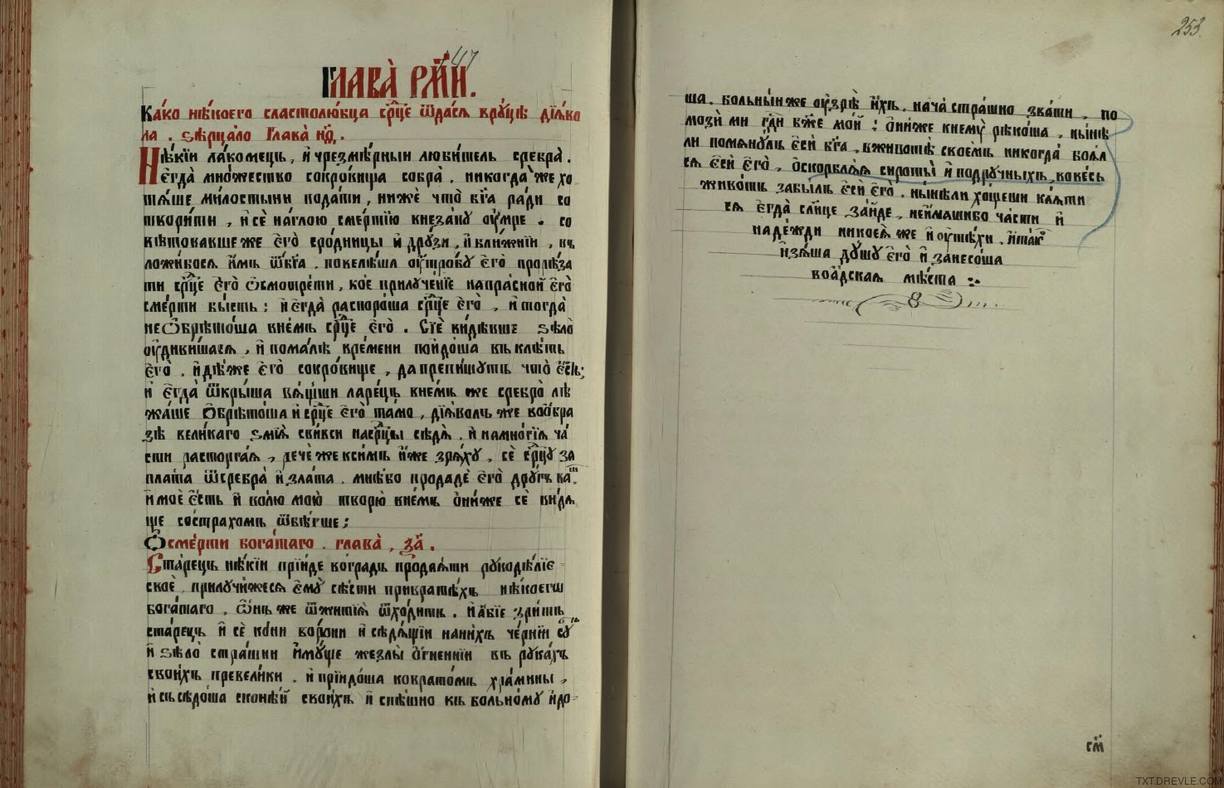 47
Глава̀ рм҃и.
Како нѣкоего сластолюбца ср҃це ѿдася вруцѣ дїяво
ла . зѣрцало Глава н҃д .
Нѣкїи лакомецъ , и чрезмѣрныи любитель сребра .
егда множество сокровища собра . никогда же хо
тяше милостыни подати , ниже что бг҃а ради со
творити , и се наглою смертїю внезапу умре . со
вѣтовавше же его сродницы и друзи , и ближнїи , въ
ложивося имъ ѿбг҃а , повелѣша оутробу его прорѣза
ти ср҃це его ѡсмотрѣти , кое прилученїе напрасной его
смерти бысть : и егда распороша ср҃це его , и тогда
не ѡбрѣтоша внемъ ср҃це его . Сїе видѣвше ѕѣло
оудивишася , и помалѣ времени поидоша въ клѣть
его . идѣже его сокровище , да препишутъ что есть ;
и егда ѿкрыша вящши ларецъ внемъ же сребро лѣ
жаше ѡбрѣтоша и ср҃це его тамо , дїяволъ же вообра
зѣ великаго ѕмїя свився насрцы сѣдя . и намногїя ча
сти расторгая , рече же ксимъ иже зряху . се ср҃це за
плата ѿсребра и злата . мнѣбо продаде его другъ ва
и мое есть и волю мою творю внемъ они же се видя
ще сострахомъ ѿбѣгше ;
Ѡсмерти богатаго . глава , з҃а .
Старецъ нѣкїи прїиде воградъ продаяти рукодѣлїе
свое . прилучижеся ему сѣсти привратѣхъ нѣкоегѡ
богатаго . ѡнъ же ѿжитїя ѿходитъ . и абїе зритъ
старецъ и се кони ворони и сѣдящїи нанихъ чернїи су
и ѕѣло страшни имуще жезлы огненнїи въ рукахъ
своихъ превелики . и прїидоша ковратомъ храмины ,
и съсѣдоша сконей своихъ и спѣшно къ больному идо
253.
ша . больныи же оузрѣ ихъ . нача страшно звати . по
мози ми гд҃и бж҃е мой : ониже кнему рѣкоша , нынѣ
ли помянулъ еси бг҃а , вживотѣ своемъ никогда боял
ся еси его , оскорбляя сироты и подручныхъ . вовесь
животъ забылъ еси его . нынѣли хощеши кляти
ся егда слнце зайде , неимашибо части и
надежди никоея же и оутѣхи . и тако
изяша душу его и занесоша
воадская мѣста :~
см҃и
TXT.DREVLE.COM